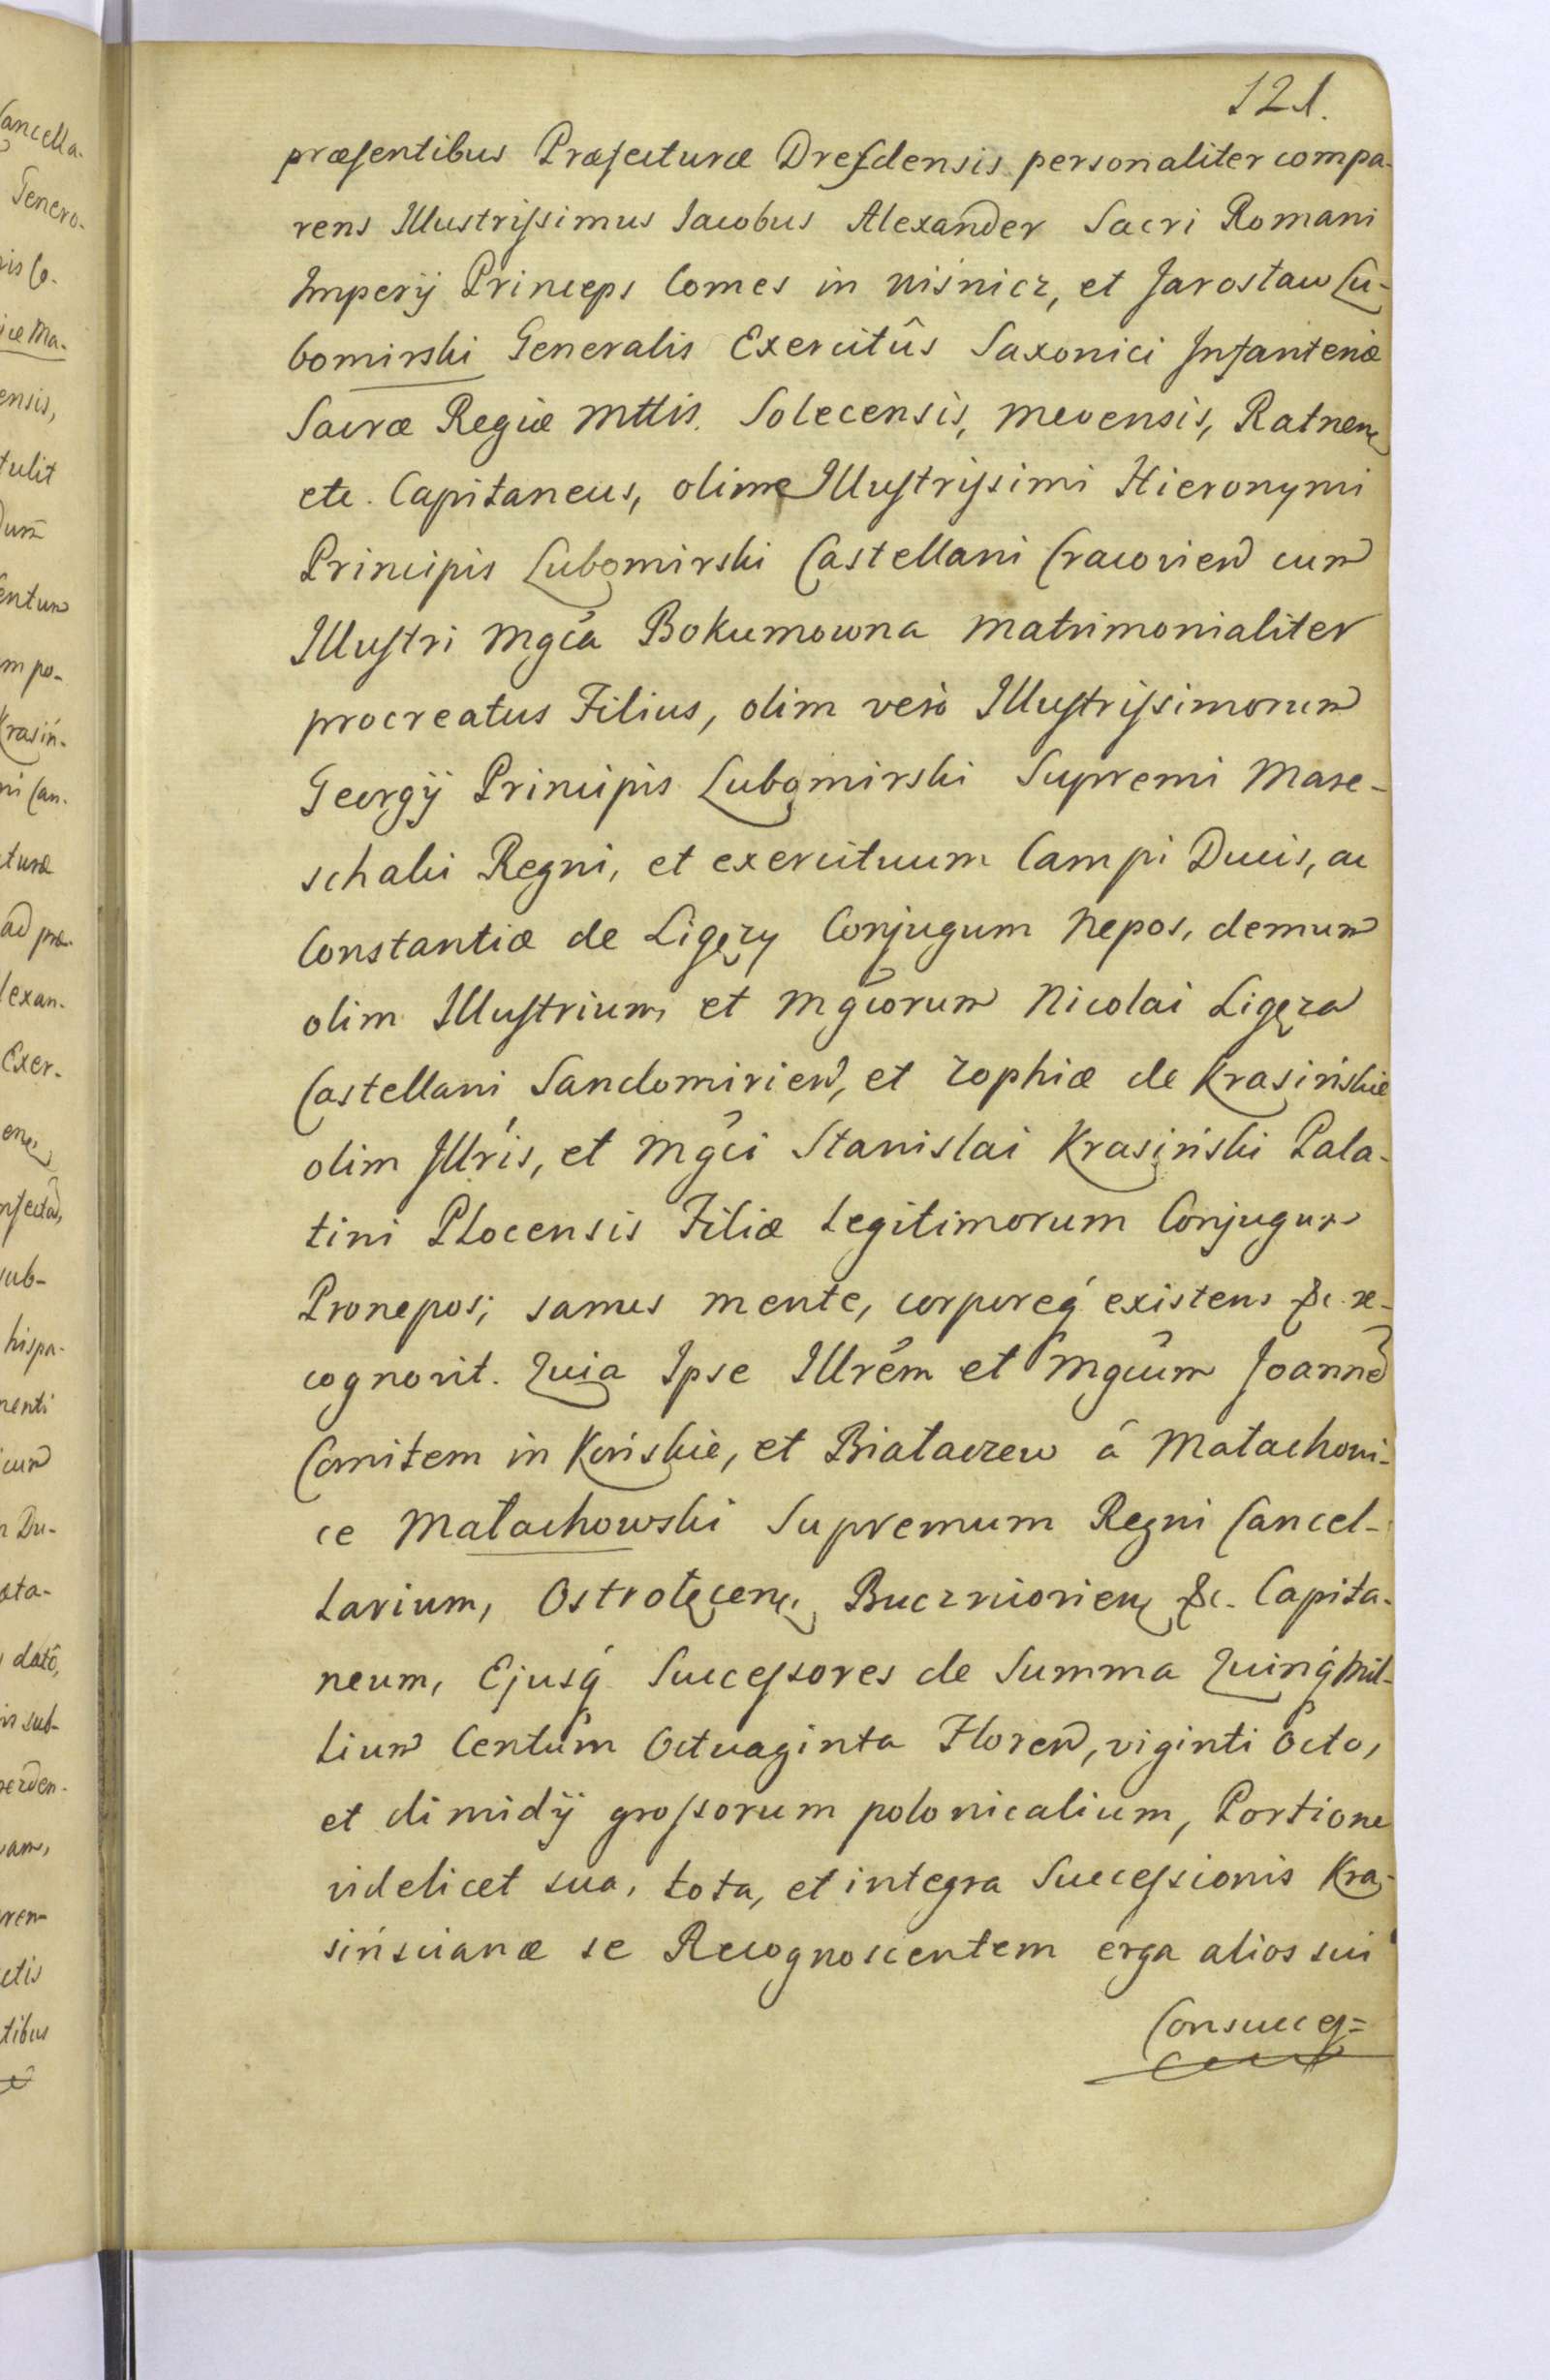 121.
præsentibus Præfecturæ Dresdensis personaliter compa-
rens Illustrissimus Jacobus Alexander Sacri Romani
Imperij Princeps Comes in Wiśnicz, et Jarosław Lu-
bomirski Generalis Exercitûs Saxonici Infanteriæ
Sacræ Regiæ Mttis. Solecensis, Mevensis, Ratnen
etc. Capitaneus, olim Illustrissimi Hieronymi
Principis Lubomirski Castellani Cracovien cum
Illustri Mgca Bokumowna matrimonialiter
procreatus Filius, olim verò Illustrissimorum
Georgij Principis Lubomirski Supremi Mare-
schalci Regni, et exercituum Campi Ducis, ac
Constantiæ de Ligęzy Conjugum Nepos, demum
olim Illustrium et Mgcorum Nicolai Ligęza
Castellani Sandomirien, et Zophiæ de Krasińskie
olim Illris, et Mgci Stanislai Krasiński Pala-
tini Plocensis Filiæ Legitimorum Conjugum
Pronepos; sanus mente, corporeq́ existens &c. re-
cognovit. Quia Ipse Illrem et Mgcum Joannē
Comitem in Końskie, et Białaczew á Małachowi-
ce Małachowski Supremum Regni Cancel-
larium, Ostrołęcen, &c. Capita-
neum, Ejusq́ Successores de Summa Quinq́ Mil-
lium Centúm Octuaginta Floren, viginti octo,
et dimidij grossorum polonicalium, Portione
videlicet sua, tota, et integra Successionis Kra-
sińscianæ se Recognoscentem erga alios sui
Consucces=